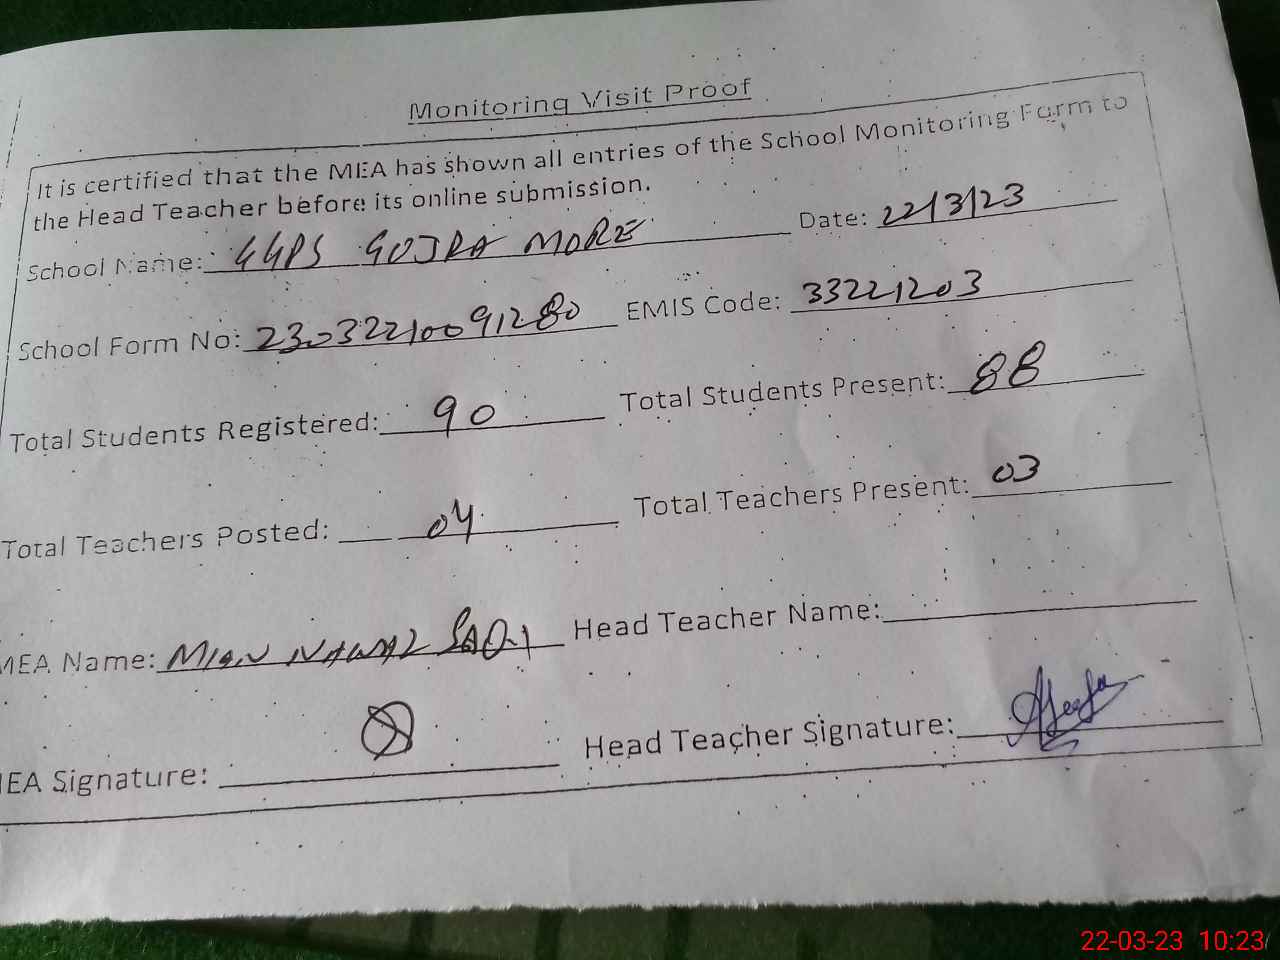 Monitoring Visit Proof
It is certified that the MEA has shown all entries of the School Monitoring Form to
the Head Teacher before its online submission.
School Name: GGPS GOJRA MORE Date: 22/3/23
School Form No: 23032210091280 EMIS Code: 33221203
Total Students Registered: 90 Total Students Present: 88
Total Teachers Posted: 04 Total Teachers Present: 03
MEA Name: MIAN NAWAZ Head Teacher Name:
MEA Signature: Head Teacher Signature:
22-03-23 10:23